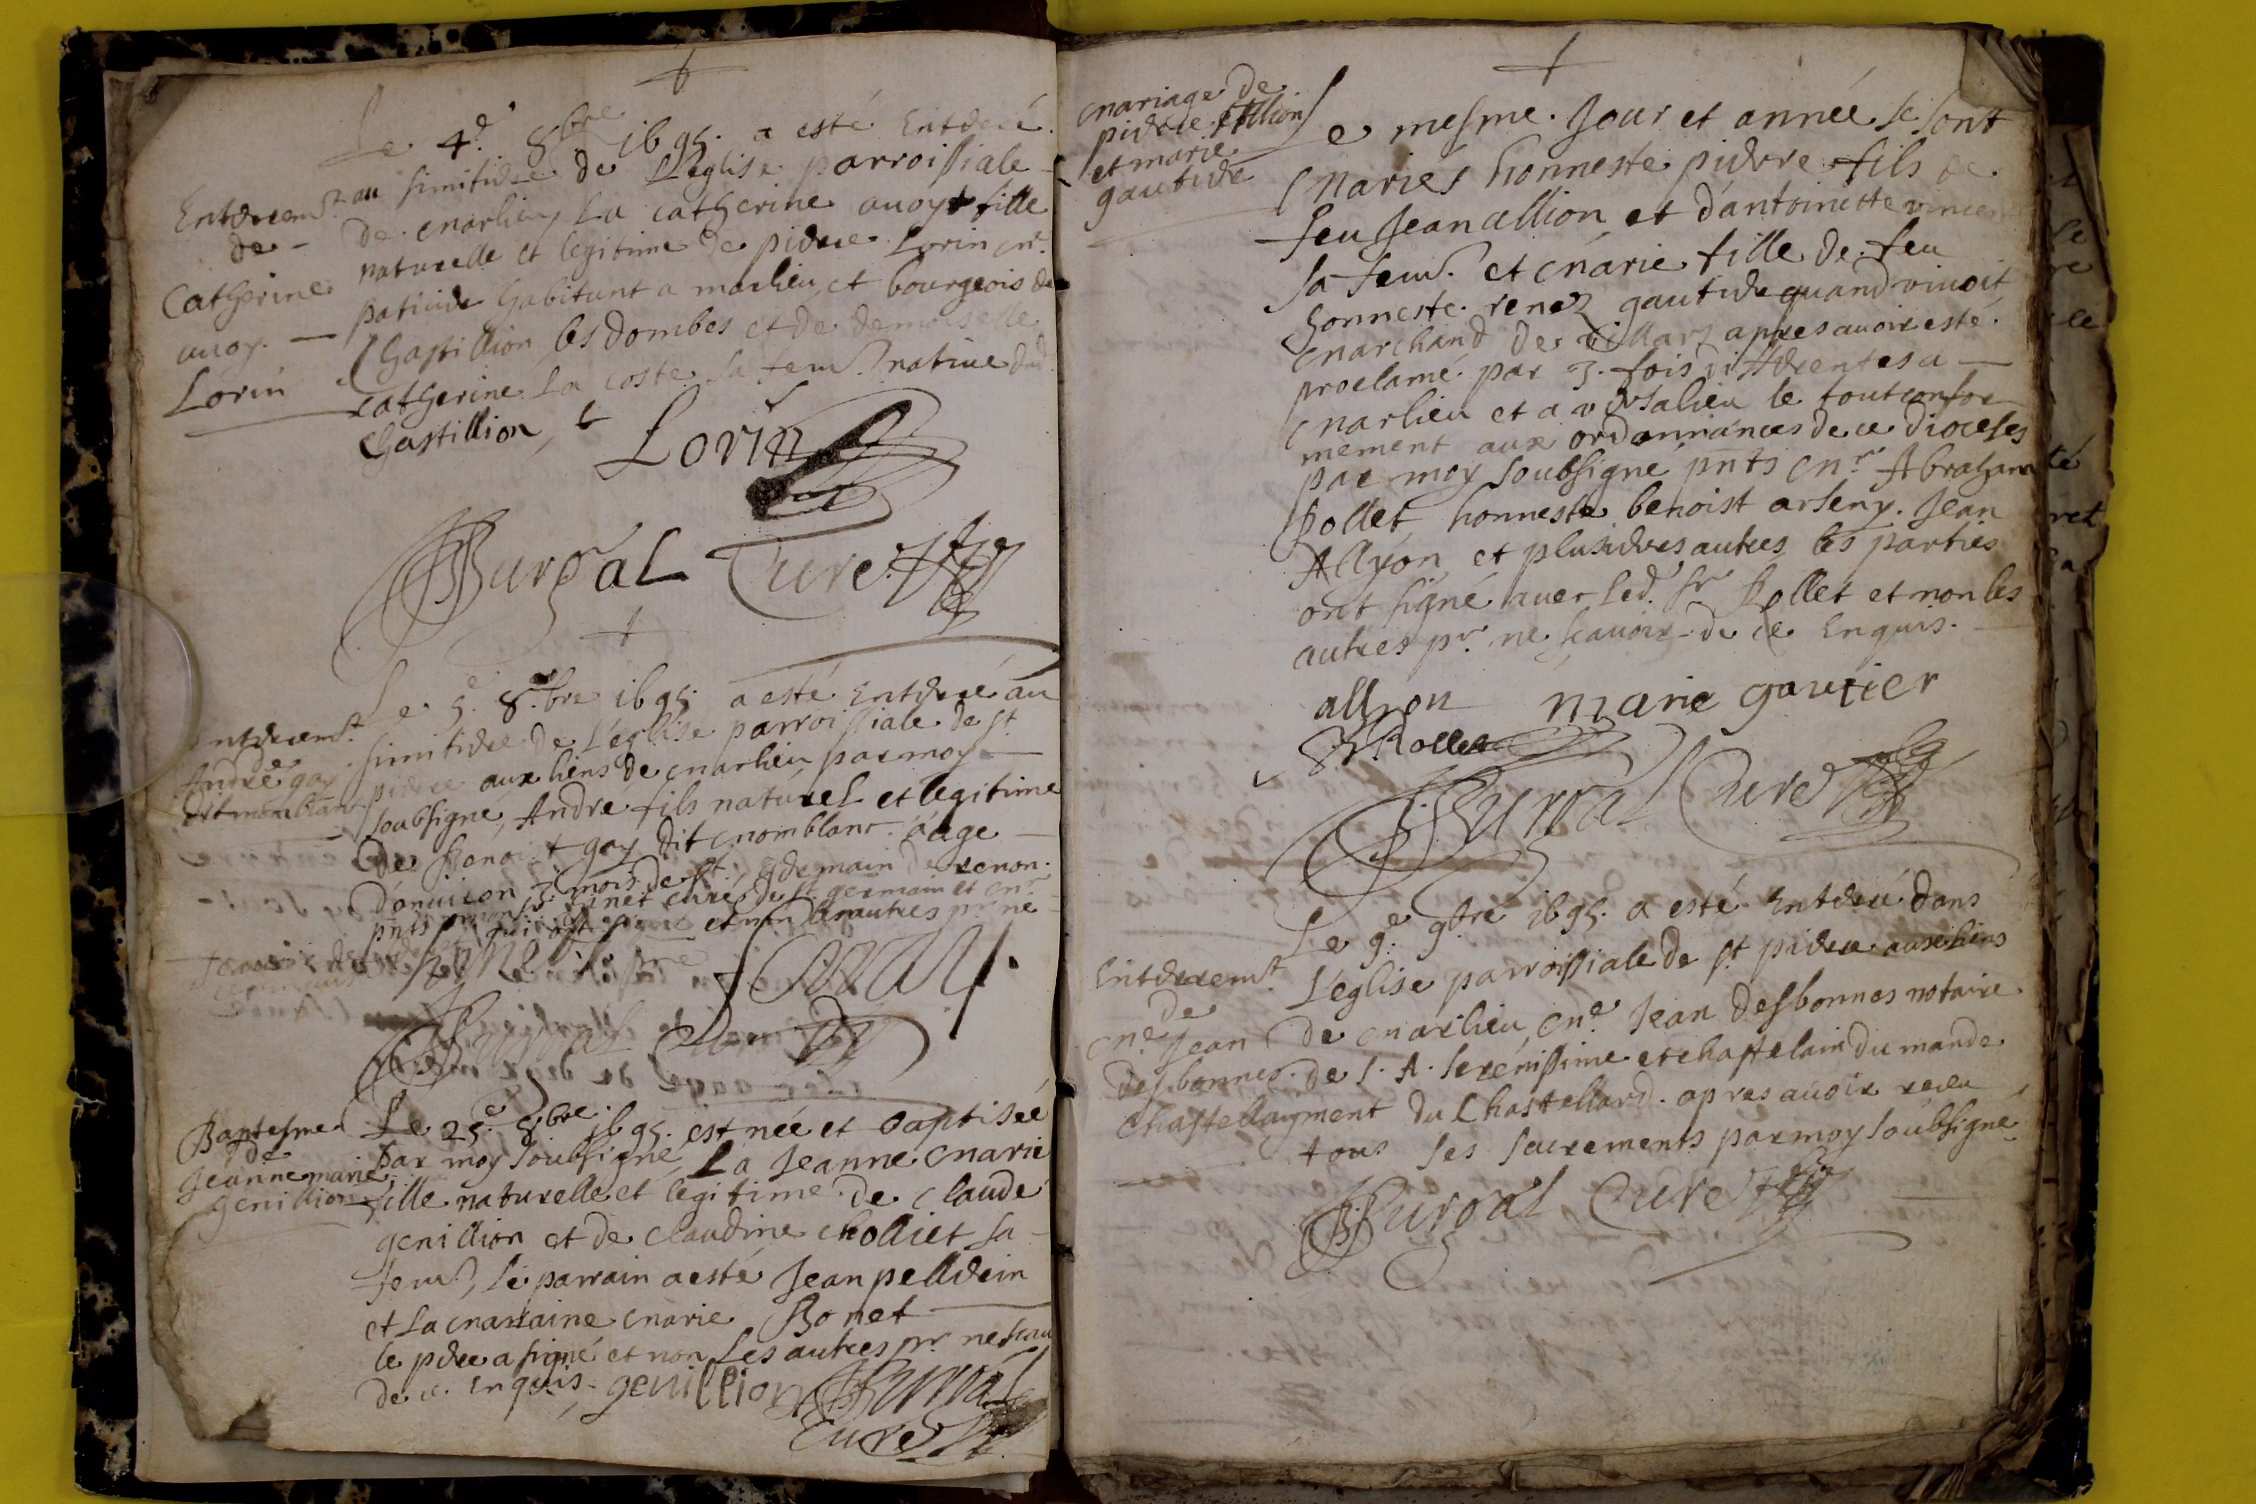 Le 4e 8bre 1695. a esté Enterré
au simitiere de L'eglise parroissiale
de marlieu La catherine auoy fille
naturelle et legitime de pierre Lorin me
patissier habitant a marlieu et bourgeois de
Chastillion les dombes et de demoiselle
catherine La coste sa femme natiue dud
Chastillion
Enterremt
de
Catherine
auoy
Lorin
Lorin
Burgal Curé
Le 5e 8bre 1695. a esté Enterré au
simitiere de L'eglise parroissiale de st
pierre aux liens de marlieu par moy
soubsigné, Andre fils naturel et legitime
de Benoit gay dit momblanc aage
d'enuiron 3 mois
curé de st germain et mr
Enterremt
de
André gay
dit momblanc
Burgal Curé
Le 25e 8bre 1695. est née et baptisée
par moy soubsigné La Jeanne marie
fille naturelle et legitime de claude
genillion et de claudine cholliet sa
femme, le parrain a esté Jean pellerin
et La marraine marie Bonet
le pere a signé et non Les autres pr ne scau
de ce enquis. genillion Burgal
Curé
Baptesme
de
Jeanne marie
genillion
mariage de
pierre allion
et marie
gautier
Le mesme Jour et année se sont
mariés honneste pierre fils de
feu Jean allion et d'antoinette vincen
sa femme et marie fille de feu
honneste renez gautier quand viuoit
marchand de villars apres auoir esté
proclamé par 3. fois differentes a
marlieu et a versalieu le tout confor
mement aux ordonnances de ce dioceses
par moy soubsigné pnts mr Abraham
Rollet honneste benoist arseny. Jean
Allyon et plusieures autres les parties
ont signé auec led. sr Rollet et non les
autres pr ne scauoir de ce enquis.
allyon marie gautier
Rollet
Burgal Curé
Le 9e 9bre 1695. a esté Enterré dans
L'eglise parroissiale de st pierre aux liens
de marlieu, me Jean desbonnes notaire
de S. A. serenissime et chastelain du mande
ment du Chastellard. apres auoir receu
tous ses sacrements par moy soubsigné
Enterremt
de
me Jean
desbonnes
Chastellayn
Burgal Curé